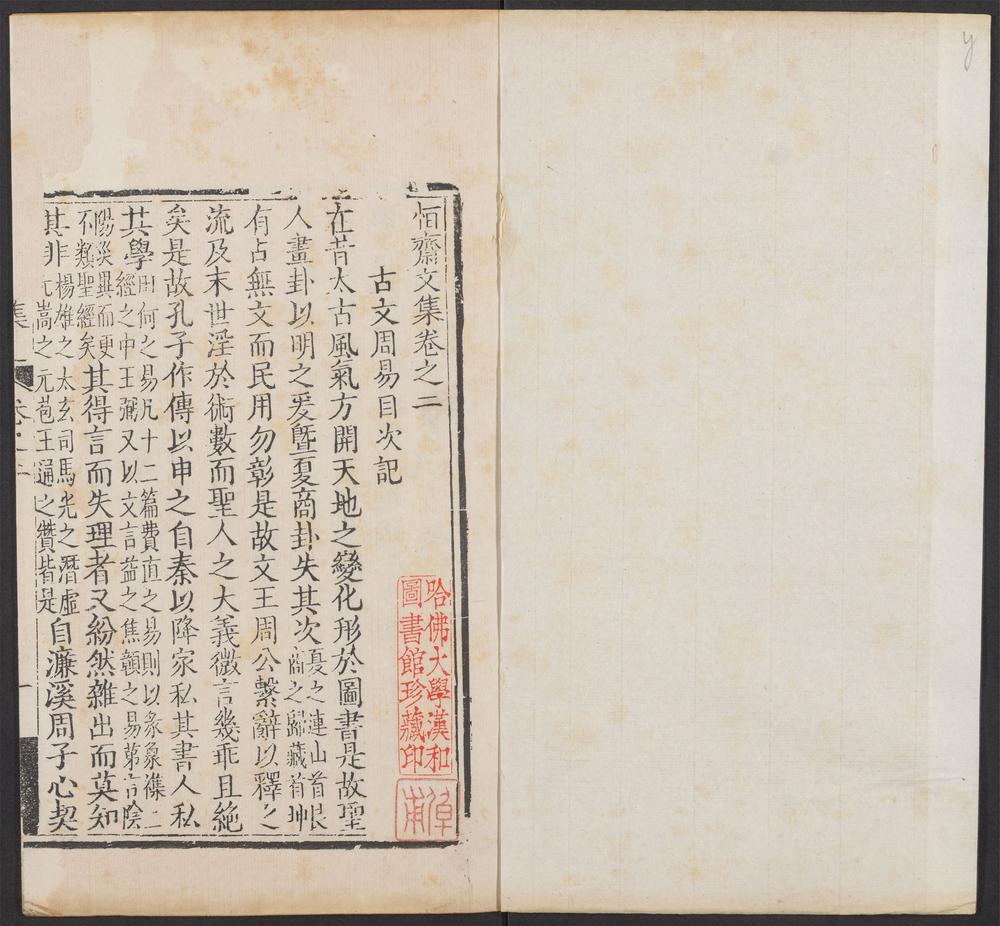 恒齋文集卷之二
古文周易目次記
在昔太古風氣方開天地之變化形於圖書是故聖
人畫卦以明之爰曁夏商卦失其次夏之連山首艮商之歸藏首坤
有占無文而民用勿彰是故文王周公繫辭以釋之
流及末世淫於術數而聖人之大義微言幾乖且絕
矣是故孔子作傳以申之自秦以降家私其書人私
其學田何之易凡十二篇費直之易則以彖象襍二經之中王弼又以文言益之焦贛之易苐言陰
陽災異而更不類聖經矣其得言而失理者又紛然雜出而莫知
其非楊雄之太玄司馬光之潛虛元嵩之元苞王通之贊皆是自濂溪周子心契
集
卷之二
一
哈佛大學漢和
圖書館珍藏印